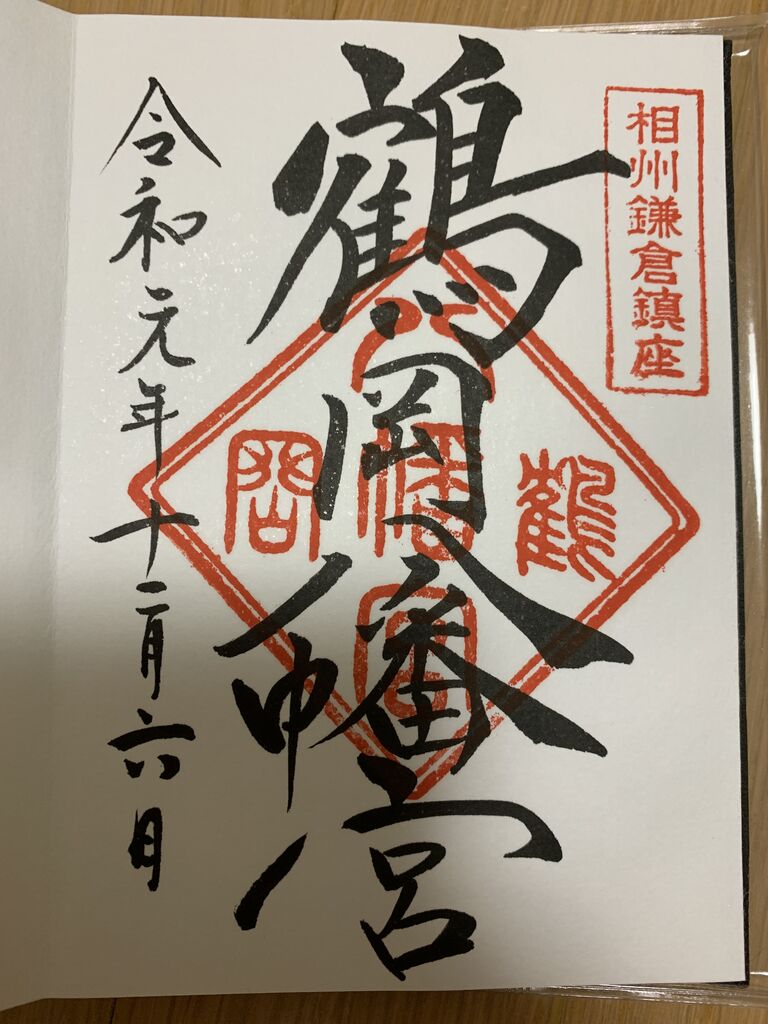 相州鎌倉鎮座
鶴岡八幡宮
鶴
八幡宮
岡
令和元年十二月六日